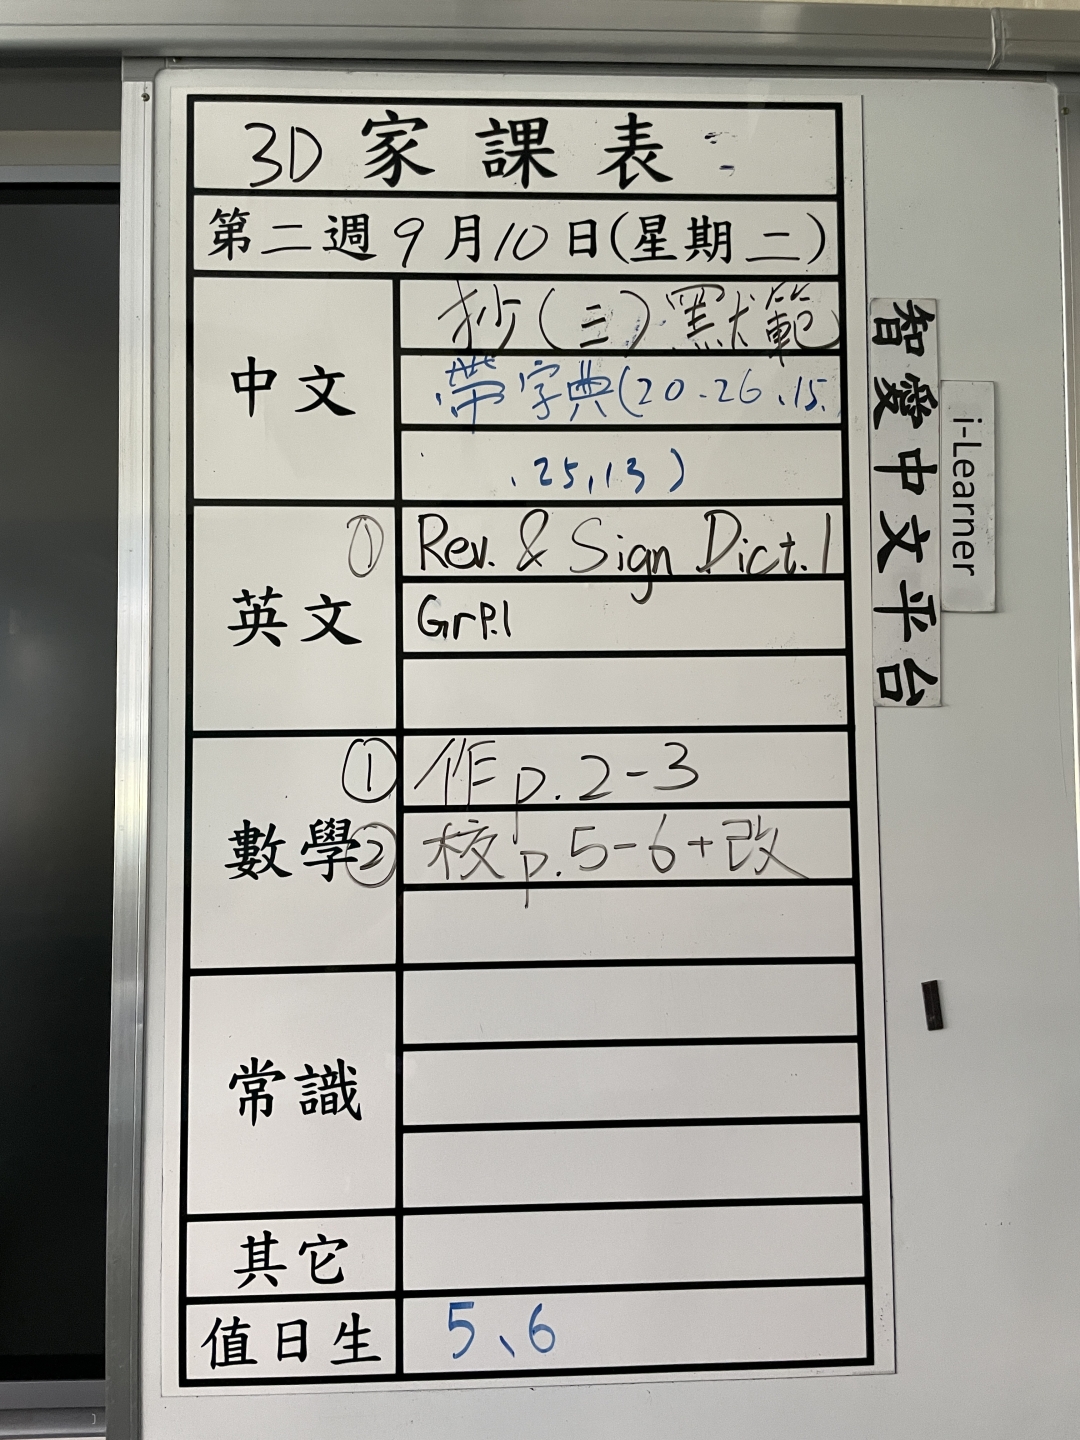 3D 家課表
第二週9月10日(星期二)
中文
抄(三)默範
帶字典(20、26、15、
、25、13)
英文
① Rev. & Sign Dict. 1
Gr P.1
數學
① 作 p. 2-3
② 校 p. 5-6+改
常識
其它
值日生
5、6
智愛中文平台
i-Learner